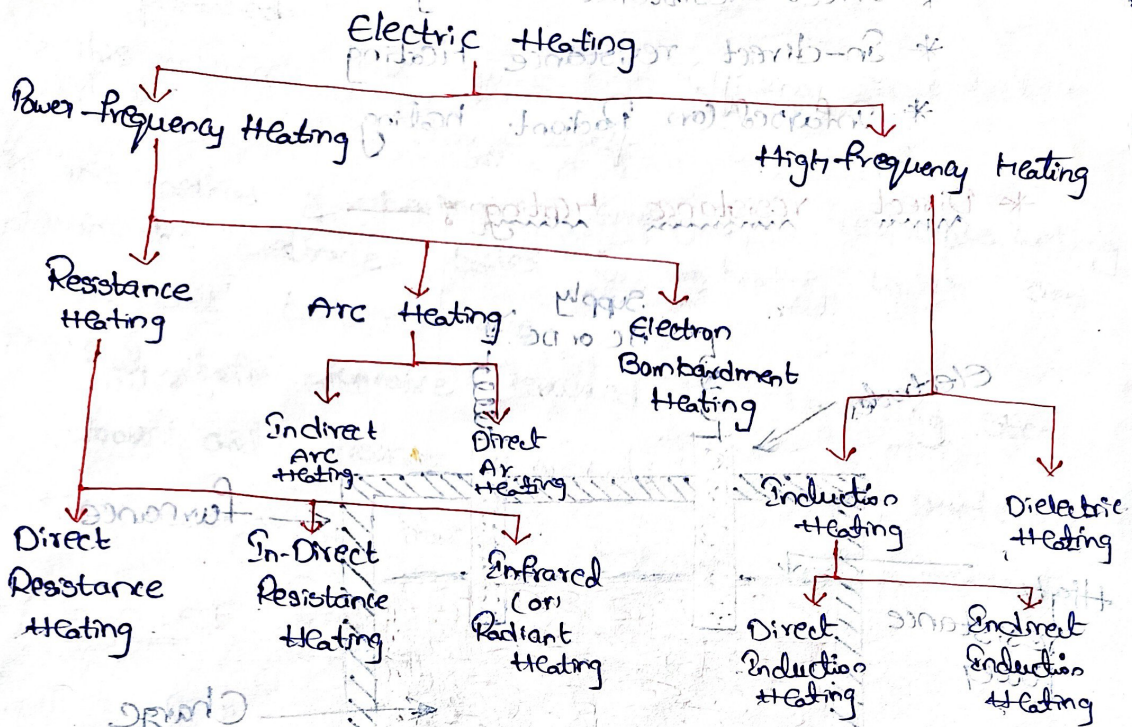 Electric Heating
Power-frequency Heating
High-frequency Heating
Resistance
Heating
Arc Heating.
Electron
Bombardment
Heating
Indirect
Arc
Heating.
Direct
Ar.
Heating
Induction
Heating
Dielectric
Heating
Direct
Resistance
Heating
In-Direct
Resistance
Heating
Infrared
(or)
Radiant
Heating
Direct
Induction
Heating
Indirect
Induction
Heating